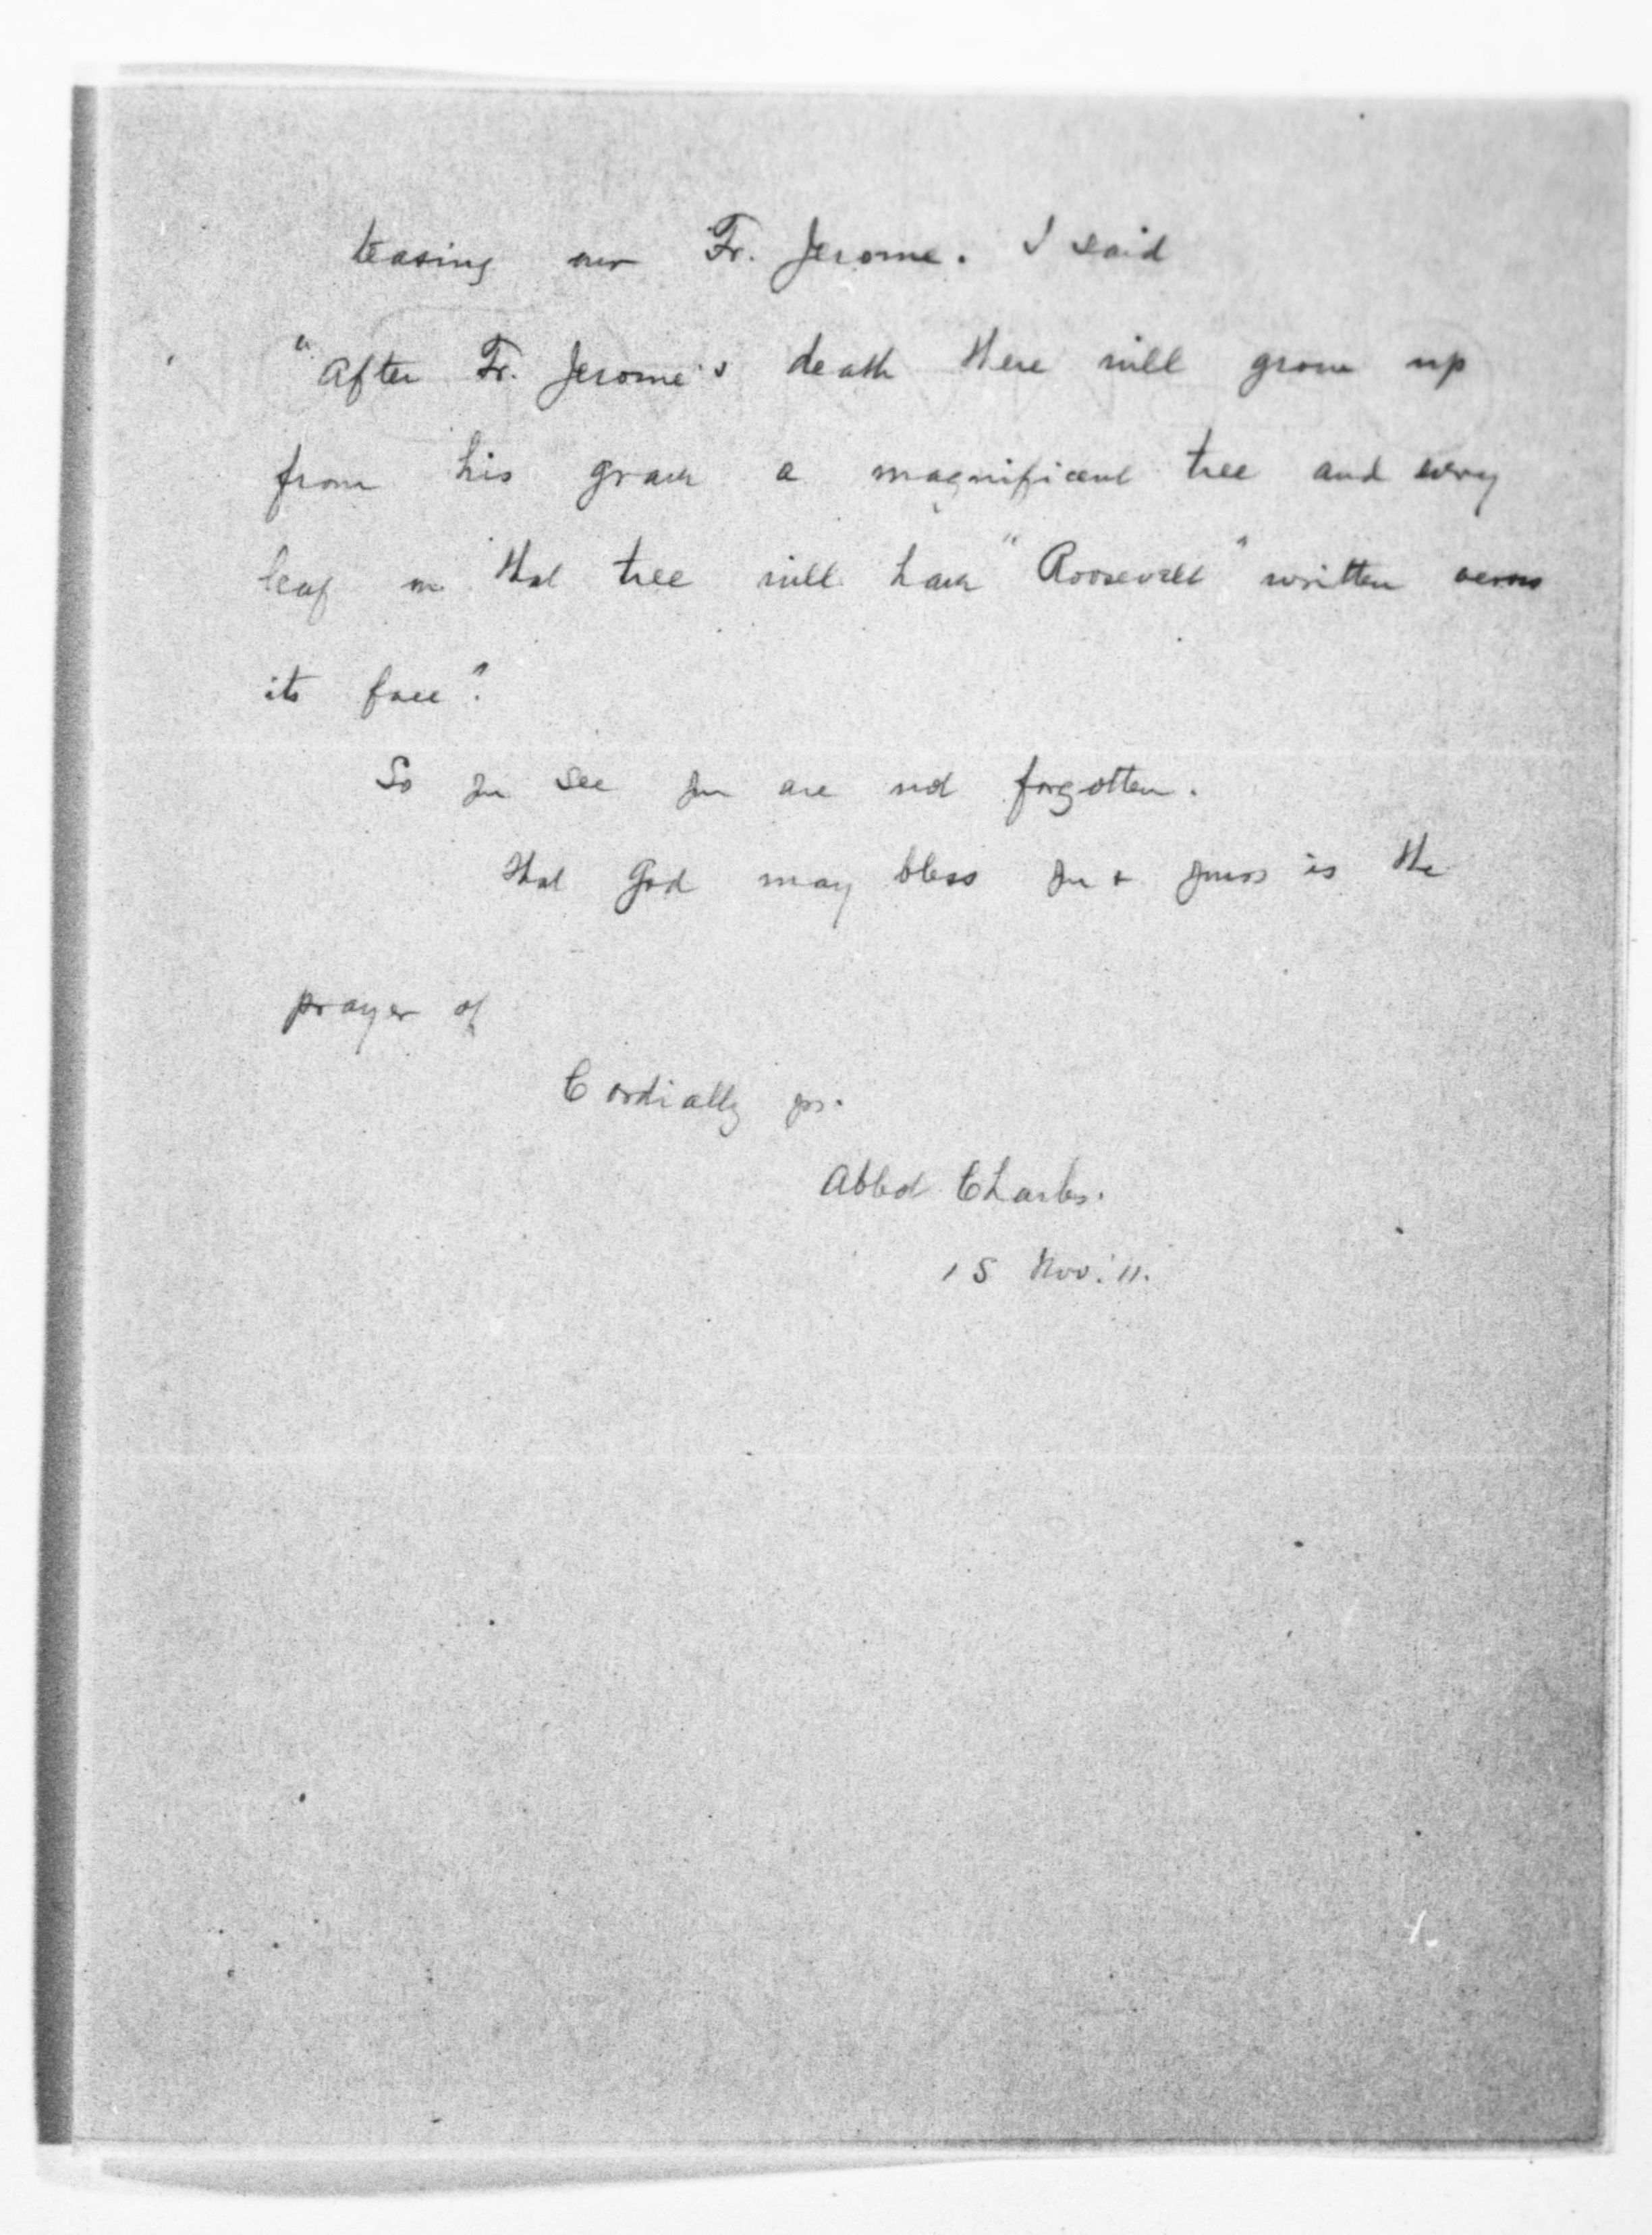 teasing our Fr. Jerome. I said
"After Fr. Jerome's death there will grow up
from his grave a magnificent tree and every
leaf on that tree will have "Roosevelt" written across
its face".
So you see you are not forgotten.
That God may bless you & yours is the
prayer of
Cordially yrs.
Abbot Charles.
15 Nov. '11.